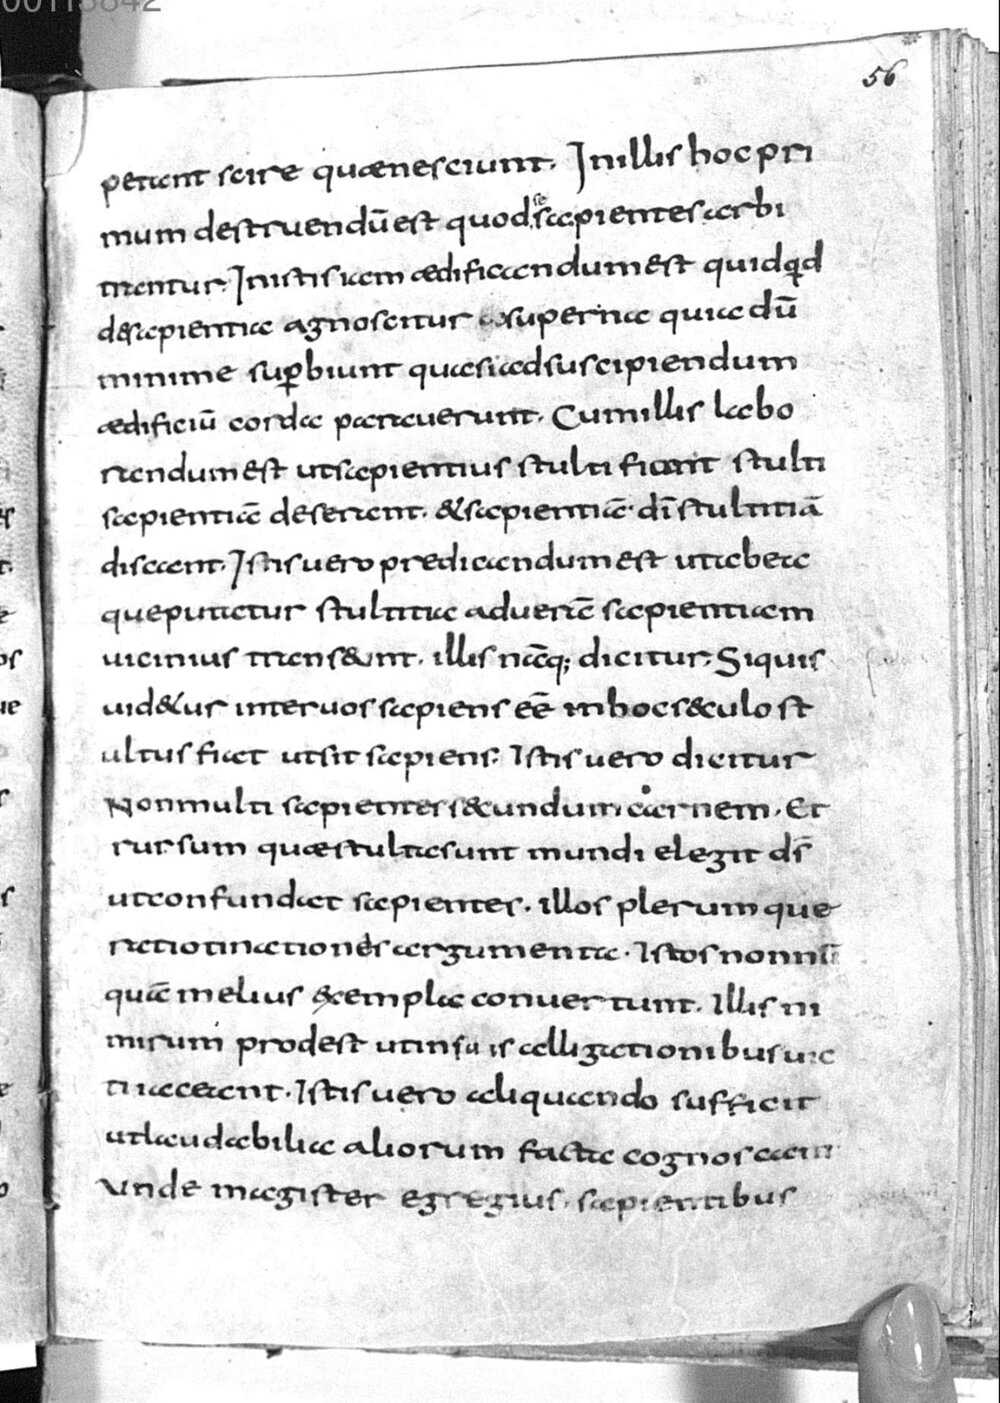 00113842
56
petant scire quae nesciunt. In illis hoc pri
mum destruendū est quod se sapientes arbi
trantur. In istis iam aedificandum est quidqd
de sapientia agnoscitur superna quia dū
minime supbiunt quasi ad suscipiendum
aedificiū corda paraverunt. Cum illis labo
randum est ut sapientius stulti fiant stulti
sapientiā deserant. & sapientiā dī stultitiā
discant. Istis vero predicandum est ut ab ea
que putatur stultitia ad verā sapientiam
vicinius transeunt. illis nāq; dicitur. Si quis
vid&ur inter vos sapiens eē in hoc s&culo st
ultus fiat ut sit sapiens. Istis vero dicitur
Non multi sapientes s&cundum carnem. Et
rursum quae stulta sunt mundi elegit ds̄
ut confundat sapientes. illos plerumque
ratiotinationes argumenta. Istos nonnū
quā melius exempla convertunt. Illis ni
mirum prodest ut in suis alligationibus vic
ti iaceant. Istis vero aliquando sufficit
ut laudabilia aliorum facta cognoscant
Unde magister egregius. sapientibus